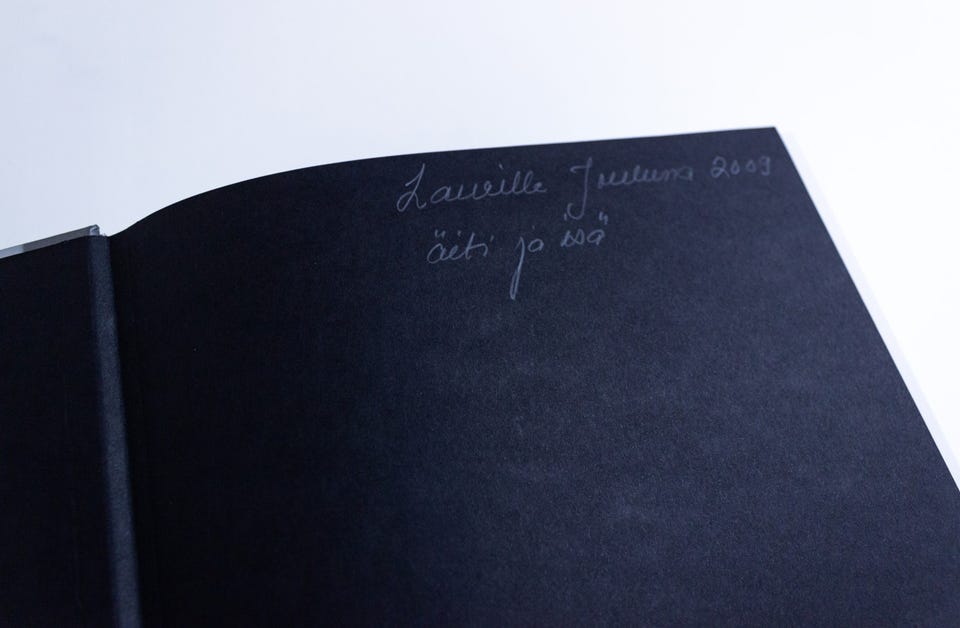 Laurille Jouluna 2009
äiti ja isä